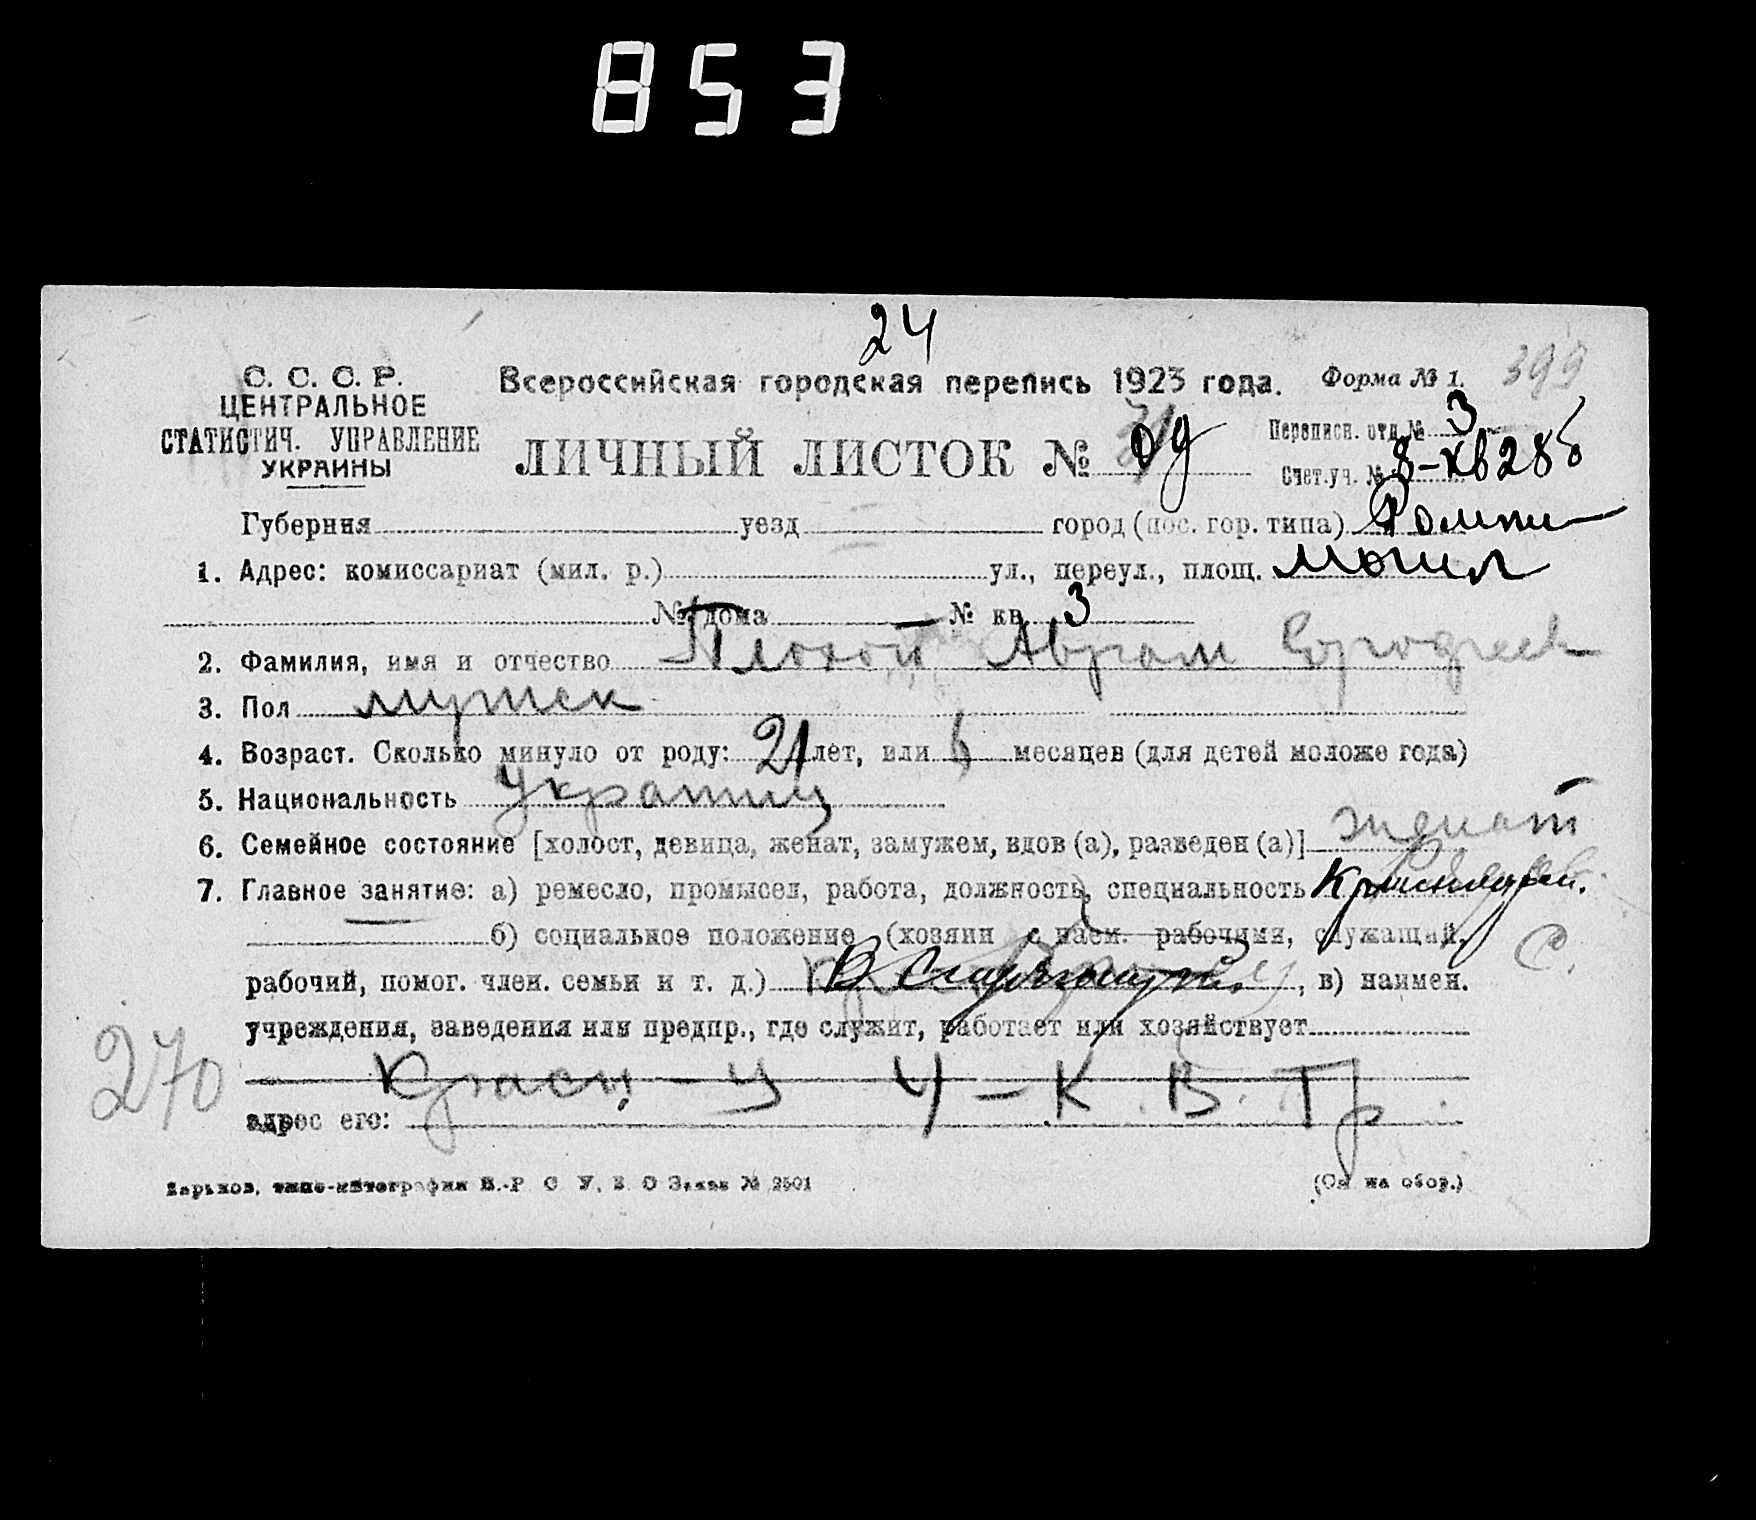 853
24
399
С. С. С. Р.
ЦЕНТРАЛЬНОЕ
СТАТИСТИЧ. УПРАВЛЕНИЕ
УКРАИНЫ
Всероссийская городская перепись 1923 года.
Форма № 1.
ЛИЧНЫЙ ЛИСТОК №
Переписн. отд. № 3
Счет. уч. № 8-кв 286
Губерния уезд город (пос. гор. типа) Ромни
1. Адрес: комиссариат (мил. р.) ул., переул., площ.
№ дома № кв. 3
2. Фамилия, имя и отчество Плохой Аврам
3. Пол мужск
4. Возраст. Сколько минуло от роду: 21 лет, или месяцев (для детей моложе года)
5. Национальность Украинец
6. Семейное состояние [холост, девица, женат, замужем, вдов (а), разведен (а)] женат
7. Главное занятие: а) ремесло, промысел, работа, должность, специальность
б) социальное положение (хозяин с наем. рабочими, служащий,
С.
рабочий, помог. член. семьи и т. д.) Служащий, в) наимен.
учреждения, заведения или предпр., где служит, работает или хозяйствует
270
адрес его:
Харьков, типо-литография В.-Р С У, В О Заказ № 2501
(См на обор.)